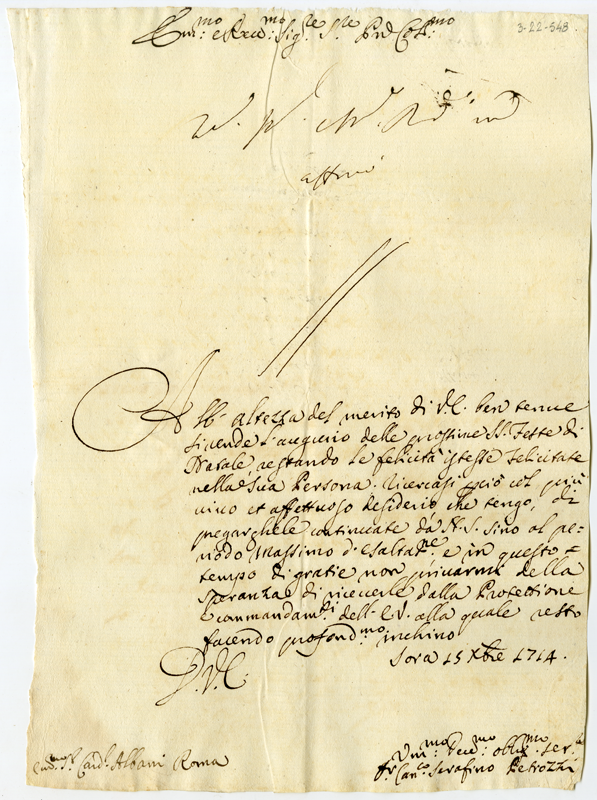 Em:mo e Rev:mo Sig:re S:re Prõn Col:mo
3-22-548
affmi
All'altezza del merito di V.E. ben tenue
si rende l'augurio delle prossime SS. Feste di
Natale, restando le felicità istesse felicitate
nella sua Persona. Ricercasi però col più
vivo et affettuoso desiderio che tengo, di
pregarghele continuate da N.S. sino al pe-
riodo Massimo d'esaltat.ne e in questo
tempo di gratie non privarmi della
speranza di riceverle dalla Protettione
e commandam.ti dell'E.V. alla quale resto
facendo profond.mo inchino
Sora 15 Xbre 1714.
D.V.E.
Em:mo S.r Card.l Albani Roma
Um:mo Dev:mo oblig:mo ser.
Can.co Serafino Petrozzi